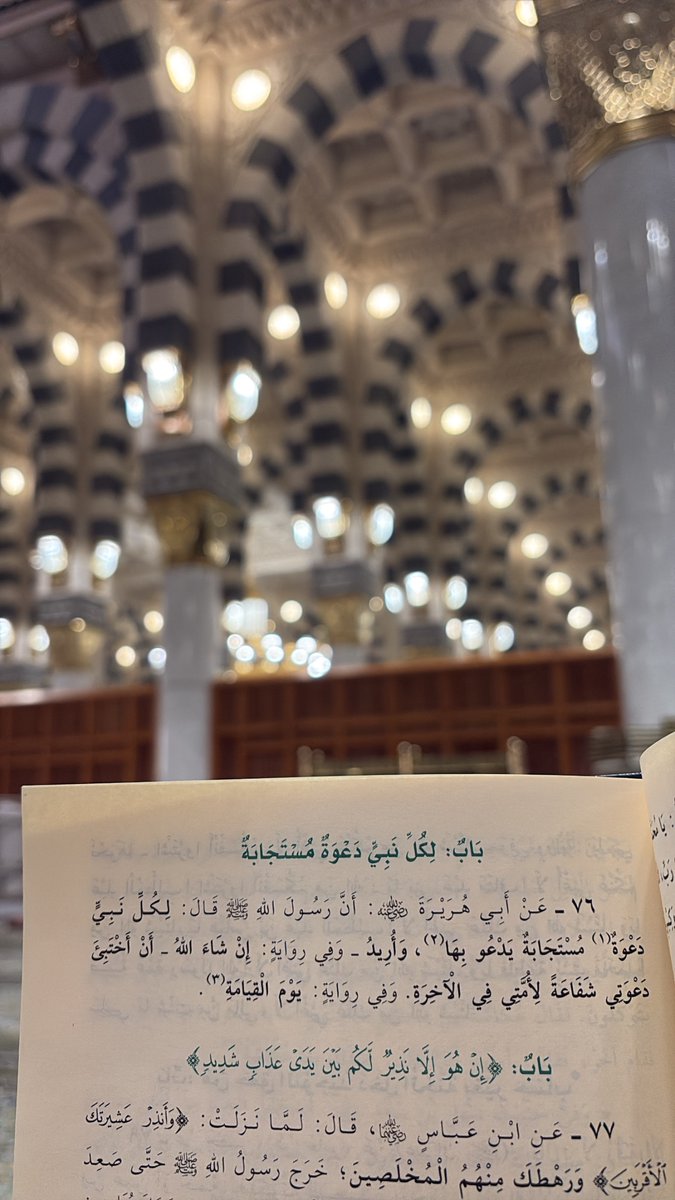 بَابٌ: لِكُلِّ نَبِيٍّ دَعْوَةٌ مُسْتَجَابَةٌ
٧٦ ـ عَنْ أَبِي هُرَيْرَةَ رضي الله عنه: أَنَّ رَسُولَ اللهِ ﷺ قَالَ: لِكُلِّ نَبِيٍّ
دَعْوَةٌ(١) مُسْتَجَابَةٌ يَدْعُو بِهَا(٢)، وَأُرِيدُ ـ وَفِي رِوَايَةٍ: إِنْ شَاءَ اللهُ ـ أَنْ أَخْتَبِئَ
دَعْوَتِي شَفَاعَةً لِأُمَّتِي فِي الْآخِرَةِ. وَفِي رِوَايَةٍ: يَوْمَ الْقِيَامَةِ(٣).
بَابٌ: ﴿إِنْ هُوَ إِلَّا نَذِيرٌ لَّكُم بَيْنَ يَدَىْ عَذَابٍ شَدِيدٍ﴾
٧٧ ـ عَنِ ابْنِ عَبَّاسٍ رضي الله عنهما، قَالَ: لَمَّا نَزَلَتْ: ﴿وَأَنذِرْ عَشِيرَتَكَ
الْأَقْرَبِينَ﴾ وَرَهْطَكَ مِنْهُمُ الْمُخْلَصِينَ؛ خَرَجَ رَسُولُ اللهِ ﷺ حَتَّى صَعِدَ